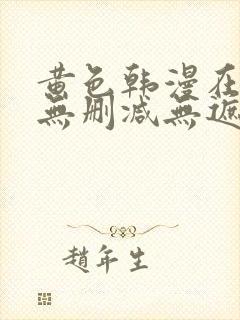 黄色韩漫在
無删减無遮
趙年生